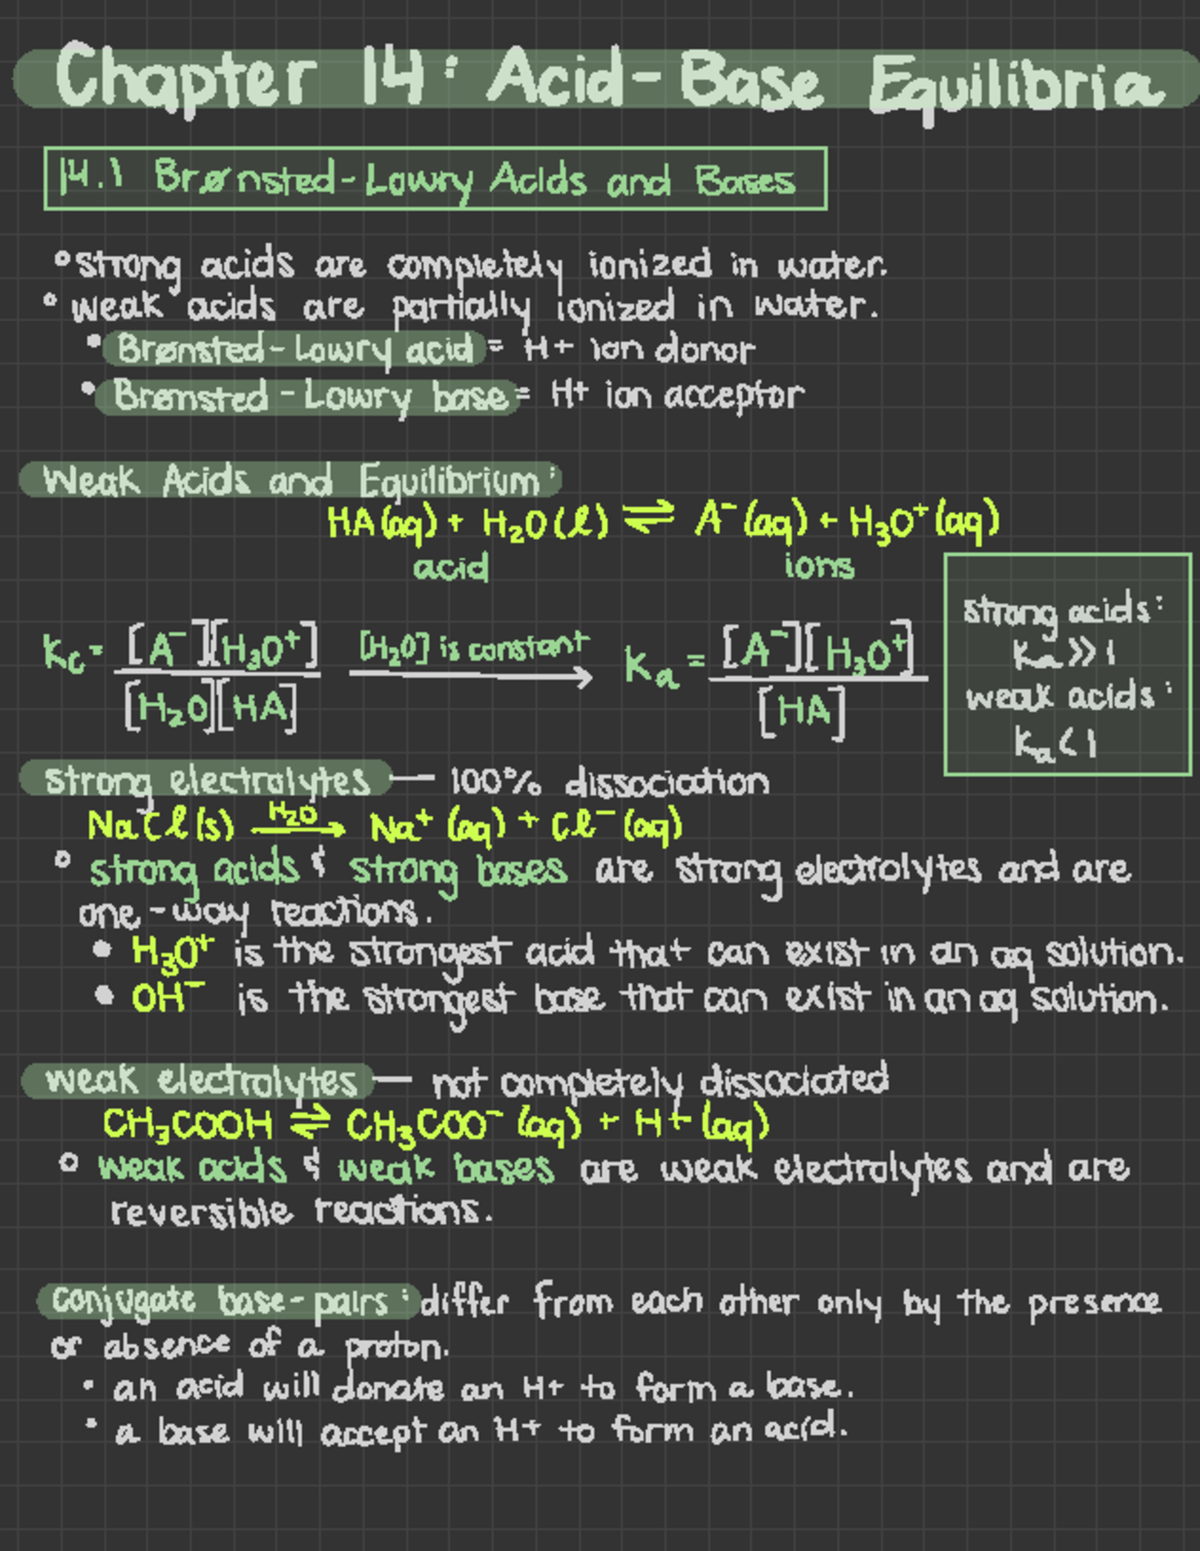 Chapter 14: Acid-Base Equilibria
14.1 Brønsted-Lowry Acids and Bases
° strong acids are completely ionized in water.
° weak acids are partially ionized in water.
• Brønsted-Lowry acid = H+ ion donor
• Brønsted-Lowry base = H+ ion acceptor
Weak Acids and Equilibrium:
HA(aq) + H₂O(l) ⇌ A⁻(aq) + H₃O⁺(aq)
acid ions
Kc = [A⁻][H₃O⁺] / [H₂O][HA] [H₂O] is constant → Ka = [A⁻][H₃O⁺] / [HA]
strong acids:
Ka >> 1
weak acids:
Ka < 1
strong electrolytes — 100% dissociation
NaCl(s) H₂O → Na⁺(aq) + Cl⁻(aq)
° strong acids & strong bases are strong electrolytes and are
one-way reactions.
• H₃O⁺ is the strongest acid that can exist in an aq solution.
• OH⁻ is the strongest base that can exist in an aq solution.
weak electrolytes — not completely dissociated
CH₃COOH ⇌ CH₃COO⁻(aq) + H+(aq)
° weak acids & weak bases are weak electrolytes and are
reversible reactions.
conjugate base-pairs: differ from each other only by the presence
or absence of a proton.
• an acid will donate an H+ to form a base.
• a base will accept an H+ to form an acid.